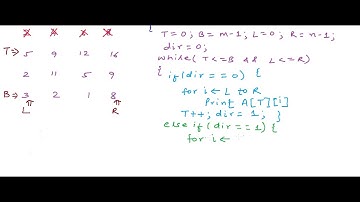 x x x x
T→ 5 9 12 16
2 11 5 9
B→ 3 2 1 8
L R
{
T=0; B=m-1; L=0; R=n-1;
dir=0;
while(T<=B && L<=R)
{ if(dir==0) {
for i← L to R
Print A[T][i]
T++; dir=1; }
else if(dir==1) {
for i←